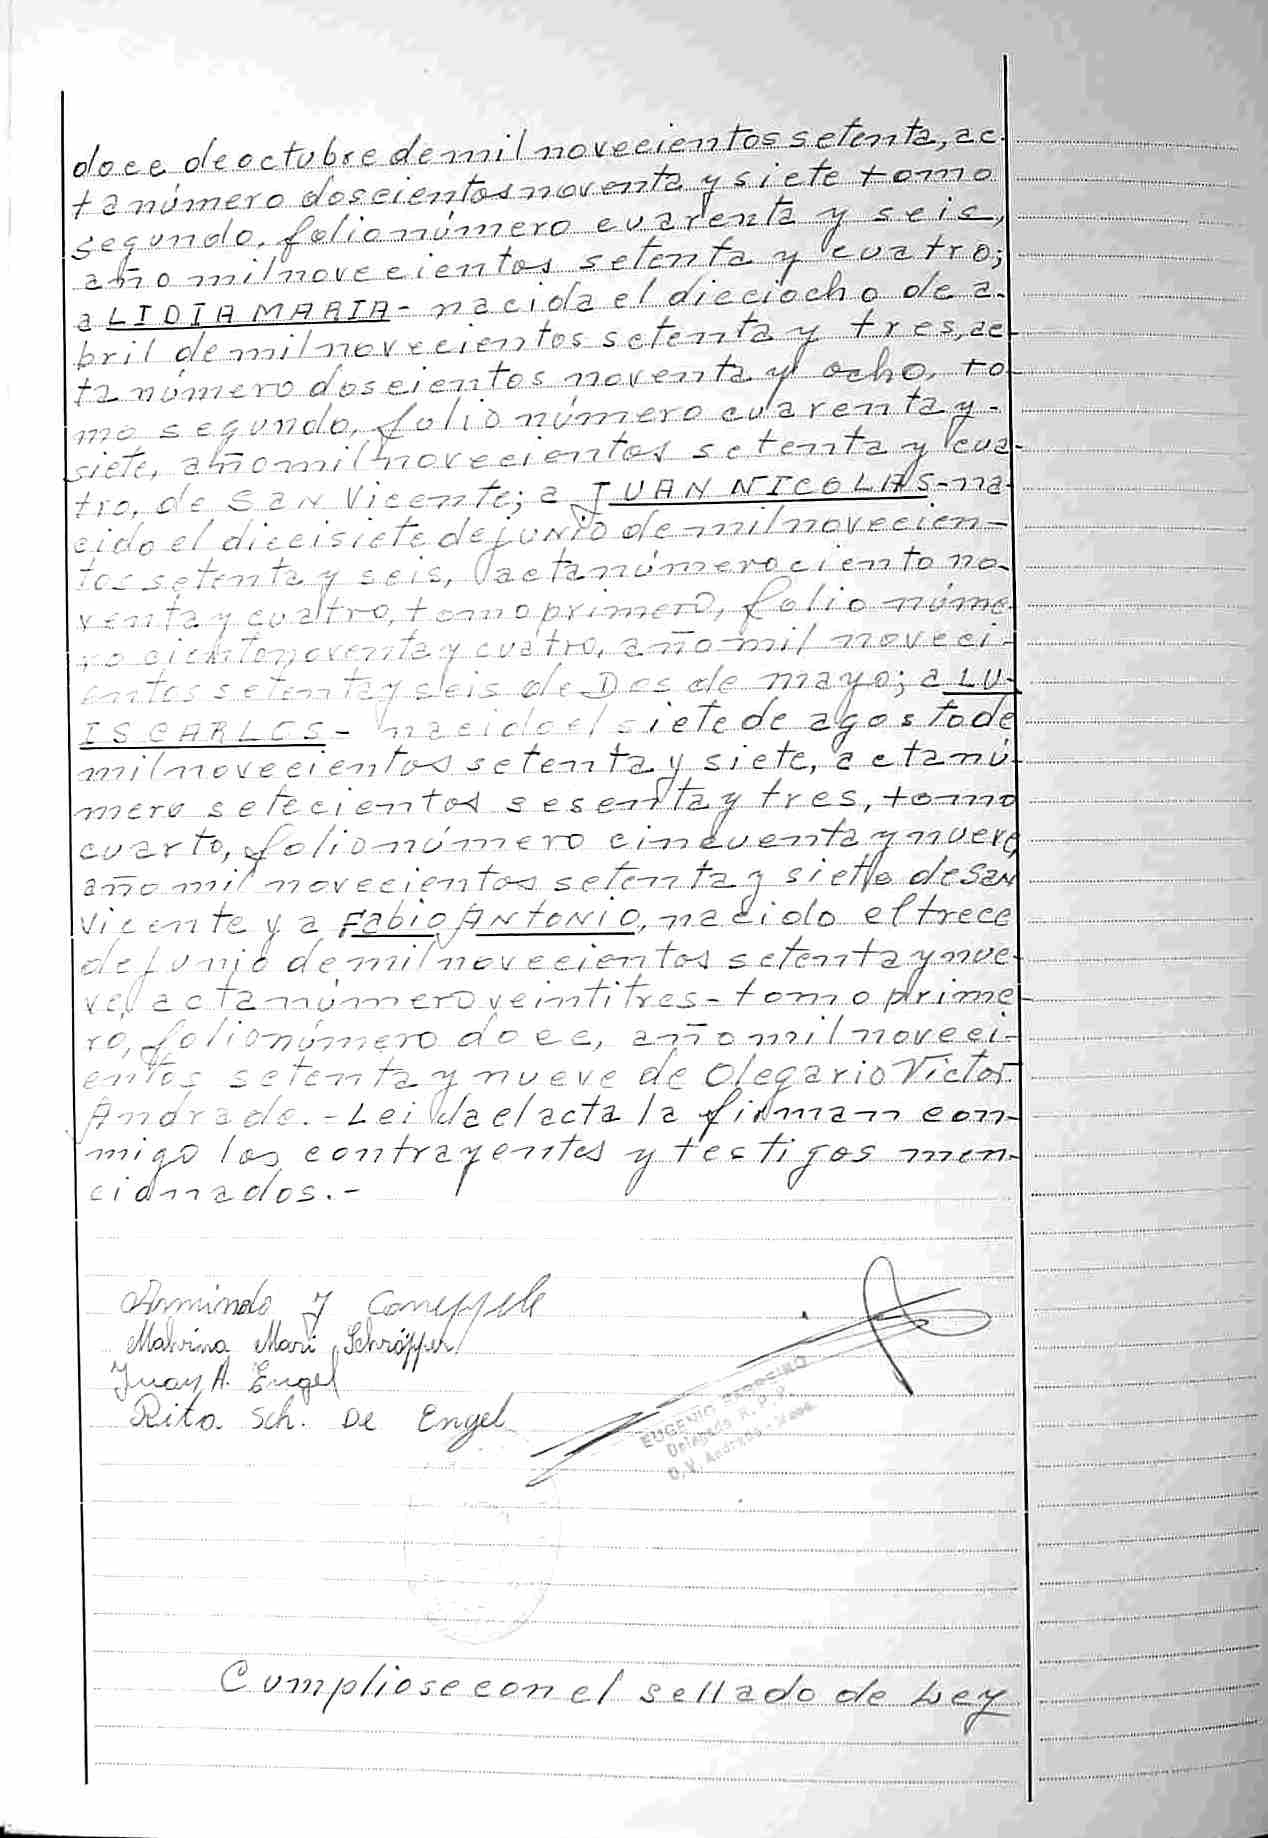 doce de octubre de mil novecientos setenta, ac-
ta número doscientos noventa y siete tomo
segundo, folio número cuarenta y seis,
año mil novecientos setenta y cuatro;
a LIDIA MARIA - nacida el dieciocho de a-
bril de mil novecientos setenta y tres, ac-
ta número doscientos noventa y ocho, to-
mo segundo, folio número cuarenta y -
siete, año mil novecientos setenta y cua-
tro, de San Vicente; a JUAN NICOLAS - na-
cido el diecisiete de junio de mil novecien-
tos setenta y seis, acta número ciento no-
venta y cuatro, tomo primero, folio núme-
ro ciento noventa y cuatro, año mil noveci-
entos setenta y seis de Dos de mayo; a LU-
IS CARLOS - nacido el siete de agosto de
mil novecientos setenta y siete, acta nú-
mero setecientos sesenta y tres, tomo
cuarto, folio número cincuenta y nueve,
año mil novecientos setenta y siete de San
Vicente y a Fabio ANTONIO, nacido el trece
de junio de mil novecientos setenta y nue-
ve, acta número veintitres - tomo prime-
ro, folio número doce, año mil noveci-
entos setenta y nueve de Olegario Victor
Andrade. - Leida el acta la firman con-
migo los contrayentes y testigos men-
cionados. -
Armindo J Caneppele
Malvina Mari Schröpfer
Juan A. Engel
Rita Sch. De Engel
EUGENIO BARREIRO
Delegado R.P.P.
O.V. Andrade - Mnes.
Cumpliose con el sellado de Ley